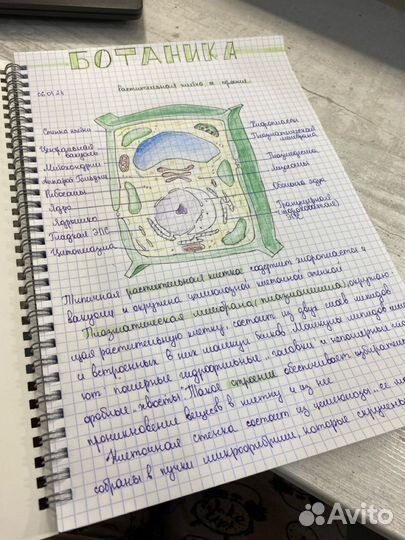 БОТАНИКА
06.01.24
Растительная клетка и строение
Стенка клетки
Центральная вакуоль
Митохондрии
Аппарат Гольджи
Рибосомы
Ядро
Ядрышко
Гладкая ЭПС
Цитоплазма
Хлоропласты
Плазматическая мембрана
Плазмодесма
Лизосомы
Оболочка ядра
Гранулярная
(шероховатая)
ЭПС
Типичная растительная клетка содержит хлоропласты и
вакуоли и окружена целлюлозной клеточной стенкой
Плазматическая мембрана (плазмалемма), окружаю
щая растительную клетку, состоит из двух слоев липидов
и встроенных в них молекул белков. Молекулы липидов име
ют полярные гидрофильные "головки" и неполярные гидро
фобные "хвосты". Такое строение обеспечивает избирательн
проникновение веществ в клетку и из нее
Клеточная стенка состоит из целлюлозы, ее мол
собраны в пучки микрофибрилл, которые скручены
Avito